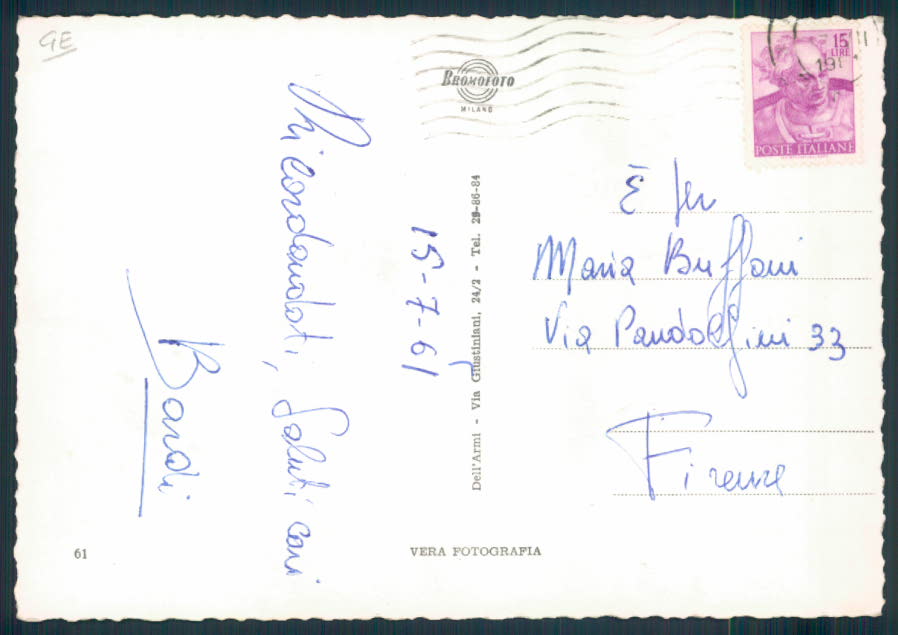 GE
BROMOFOTO
MILANO
15
LIRE
POSTE ITALIANE
Ricordandoti, Saluti cari
Bardi
15-7-61
Dell'Armi - Via Giustiniani, 24/2 - Tel. 28-86-84
Maria Buffoni
Via Pandolfini 33
Firenze
61
VERA FOTOGRAFIA